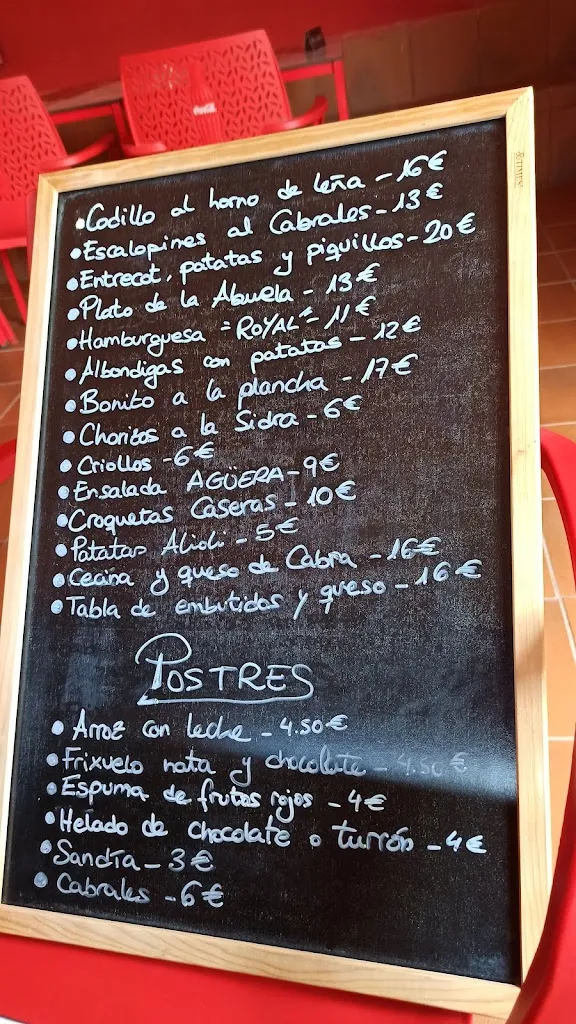 Coca-Cola
• Codillo al horno de leña - 16€
• Escalopines al Cabrales - 13€
• Entrecot, patatas y piquillos - 20€
• Plato de la Abuela - 13€
• Hamburguesa "ROYAL" - 11€
• Albondigas con patatas - 12€
• Bonito a la plancha - 17€
• Choritos a la Sidra - 6€
• Criollos - 6€
• Ensalada AGÜERA - 9€
• Croquetas Caseras - 10€
• Patatas Alioli - 5€
• Cecina y queso de Cabra - 16€
• Tabla de embutidos y queso - 16€
POSTRES
• Arroz con leche - 4.50€
• Frixuelo nata y chocolate - 4.50€
• Espuma de frutos rojos - 4€
• Helado de chocolate o turrón - 4€
• Sandía - 3€
• Cabrales - 6€